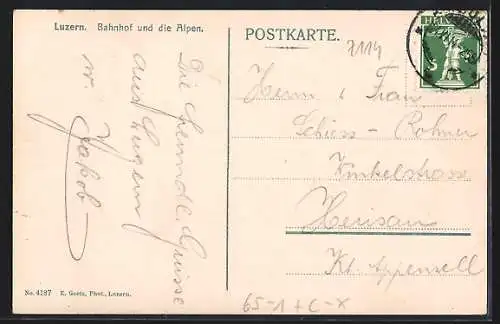 Luzern. Bahnhof und die Alpen.
POSTKARTE.
HELVETIA
5
7114
Die freundl. Grüsse
aus Luzern
Jakob
Herrn & Frau
Schiess-Rohner
Winkelstrasse
Herisau
Kt. Appenzell
No. 4187 E. Goetz, Phot., Luzern.
65-1+C-X